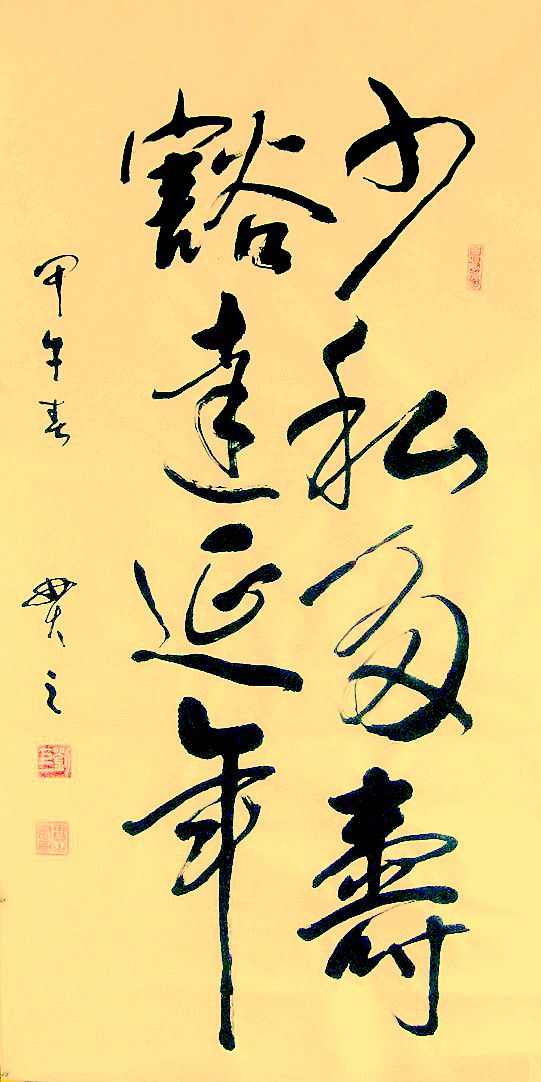 少私多壽
豁達延年
甲午春 贯之